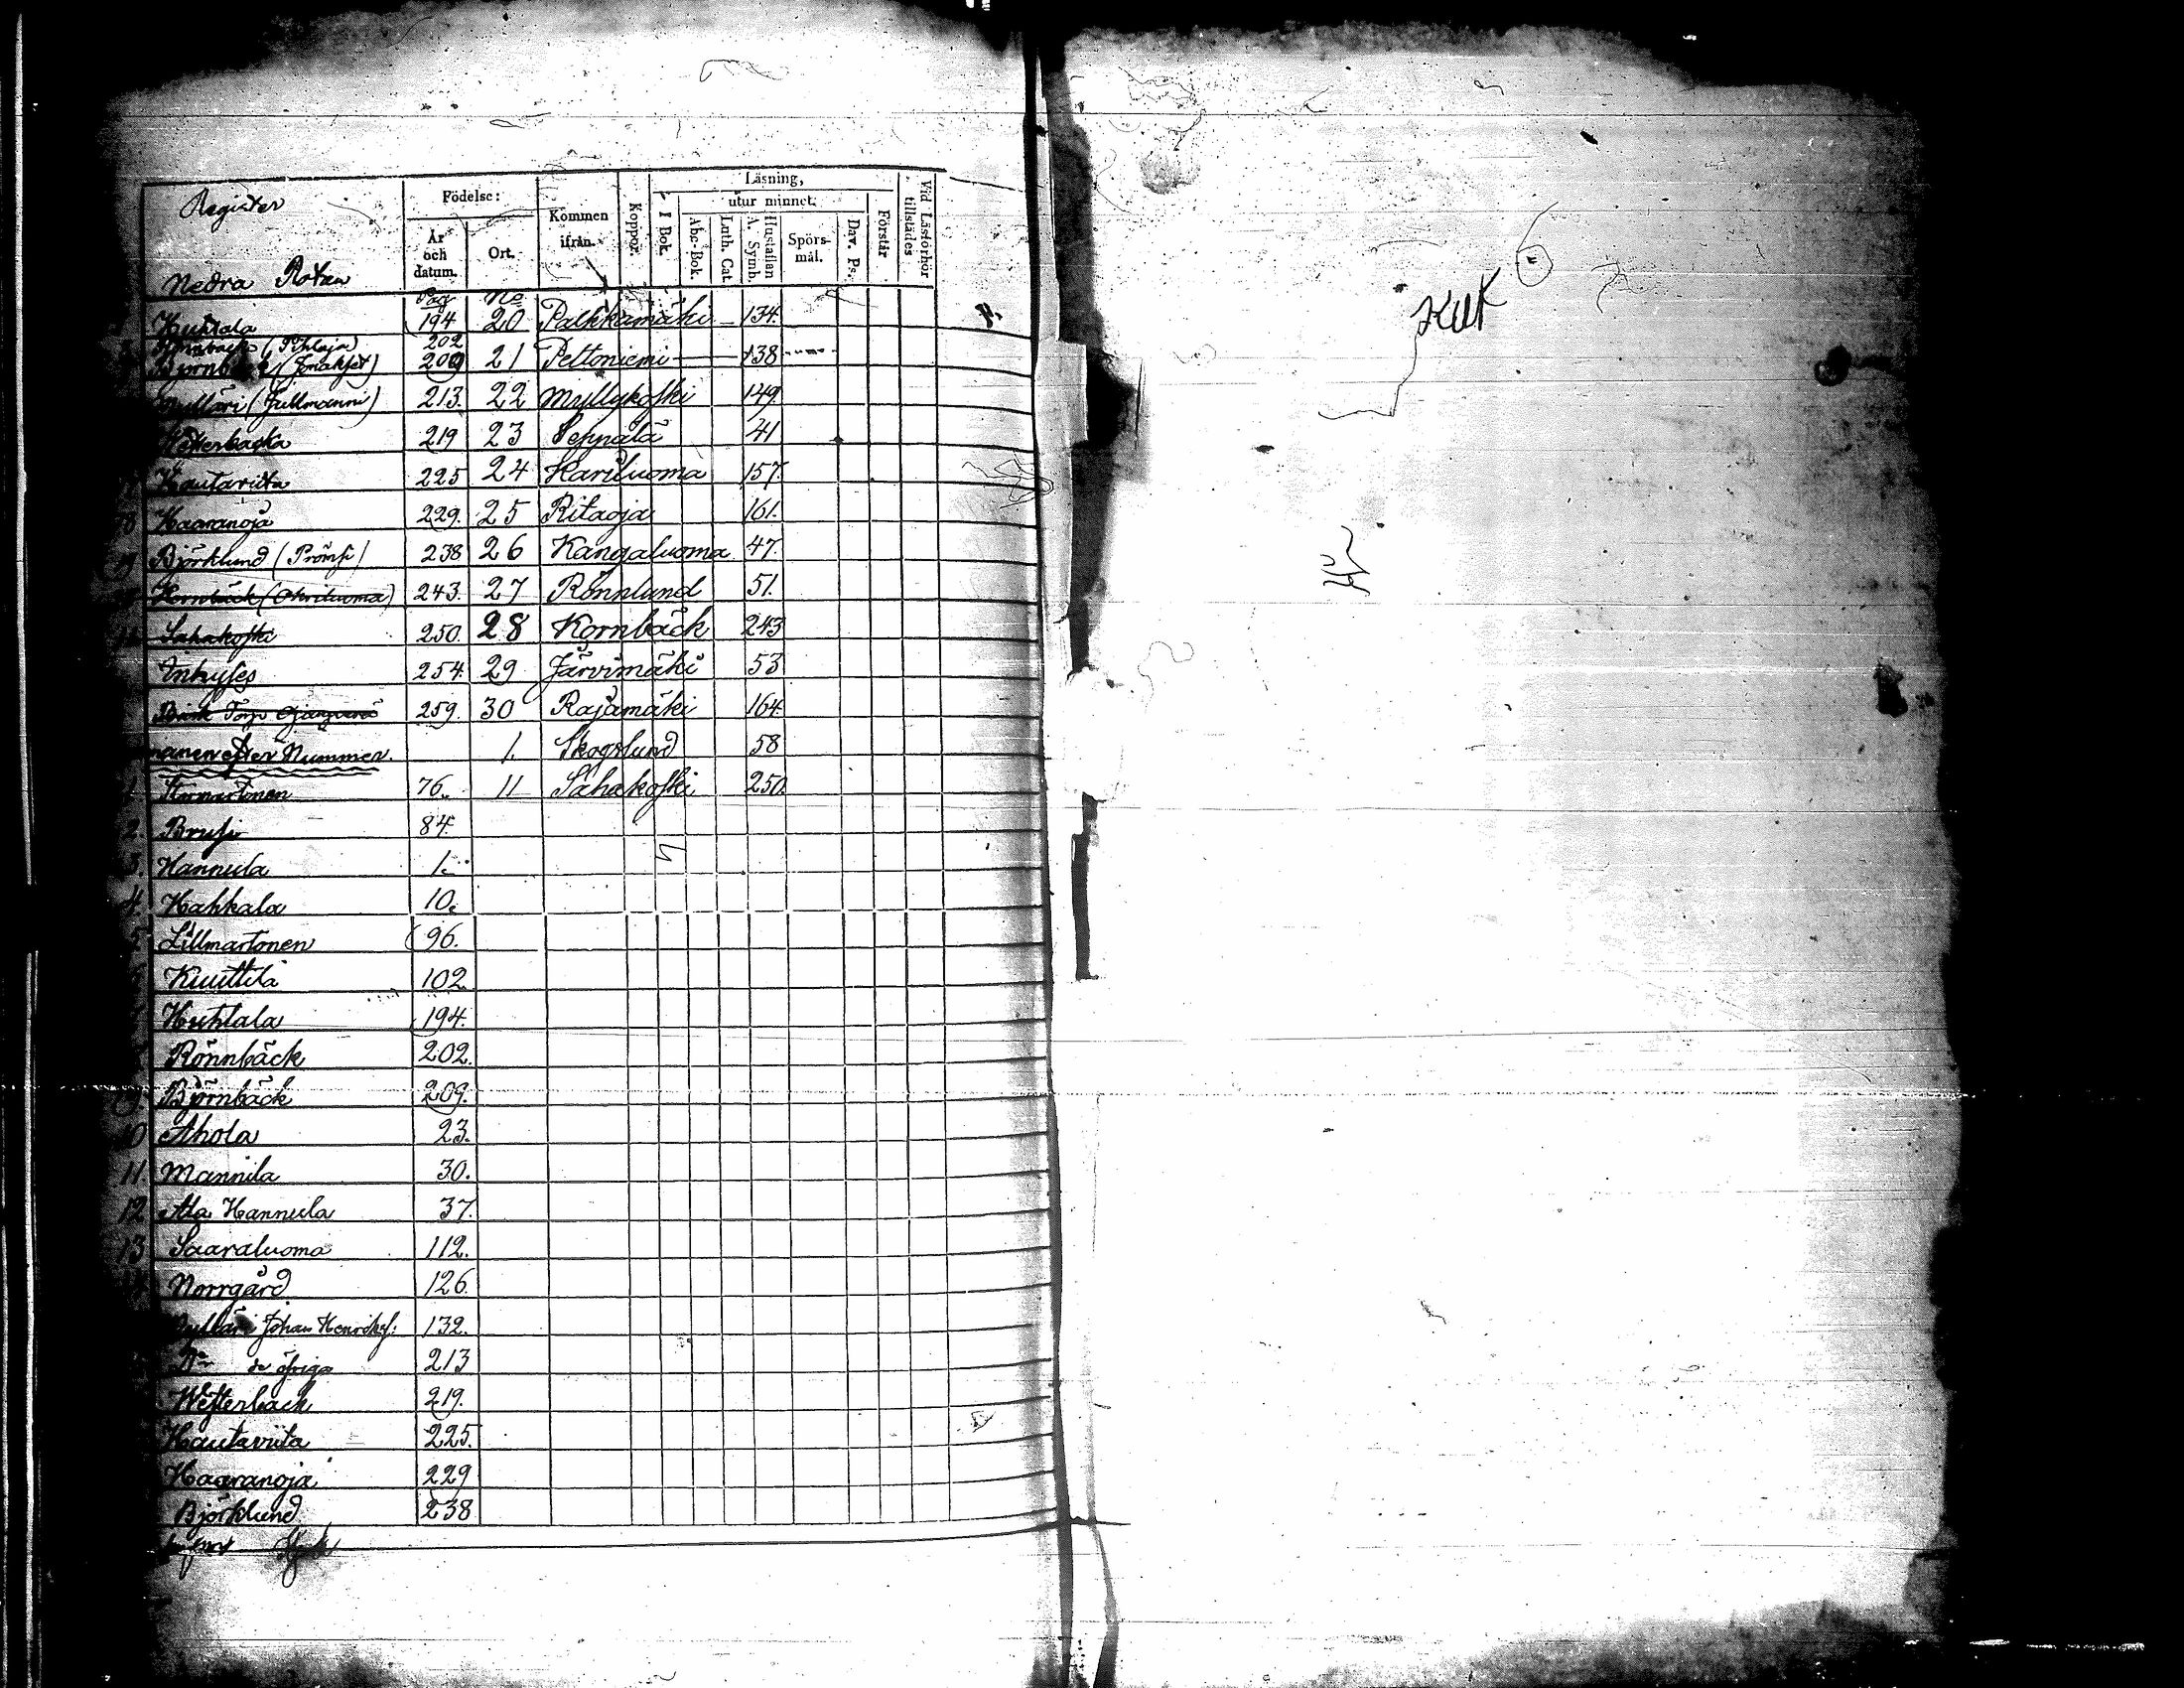 Register
Nedra Rotan
Födelse:
År och datum.
Ort.
Kommen ifrån.
Koppor.
Läsning,
I Bok.
utur minnet.
Abc-Bok.
Luth. Cat.
Hustaflan A. Symb.
Spörsmål.
Dav. Ps.
Förstår
Vid Läsförhör tillstädes
Pag No
Huhtala 194 20 Palkkamäki 134.
202
Björnbäck (Jonakset) 209 21 Peltoniemi 138
(Jullmanni) 213. 22 Myllykoski 149
Westerbacka 219 23 Seppälä 41
Hautaviita 225 24 Hariluoma 157.
Haaranoja 229. 25 Ritaoja 161.
Björklund (Prönsi) 238 26 Kangaluoma 47.
Kornbäck 243. 27 Rönnlund 51.
Sahakoski 250. 28 Kornbäck 243
Inhyses 254. 29 Järvimäki 53
259. 30 Rajamäki 164
efter Nummer. 1. Skogslund 58
Stormartonen 76. 11 Sahakoski 250.
2. Brusi 84.
3. Hannula 1.
4. Hakkala 10.
5 Lillmartonen 96.
Kuuttila 102
Huhtala 194.
Rönnbäck 202.
Björnbäck 209.
10 Ahola 23.
11. Mannila 30.
12 Ala Hannula 37.
13 Saaraluoma 112.
Norrgård 126.
Johan Henriks: 132.
de öfriga 213
Westerback 219.
Hautaviita 225.
Haaranoja 229
Björklund 238
KuK 6